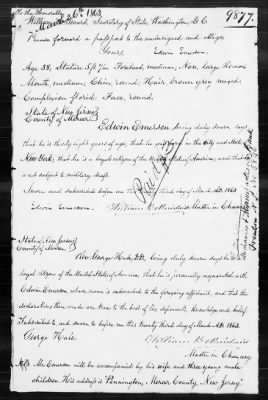 To the Honorable
William Seward, Secretary of State, Washington D.C.
March 26th 1863.
9877.
Please forward a passport to the undersigned and oblige
Yours Edwin Emerson.
Age 38, Stature 5 ft 7 in Forehead, medium, Nose, large Roman
Mouth, medium, Chin, round, Hair, brown grey mixed.
Complexion florid. Face, round.
State of New Jersey
County of Mercer
Edwin Emerson being duly sworn says
that he is thirty eight years of age, that he was born in the City and State
New York, that he is a loyal citizen of the United States of America, and that is
not subject to military draft.
Sworn and subscribed before me this third day of March A.D. 1863.
Edwin Emerson. Master in Chancery
State of New Jersey
County of Mercer
Rev George Hale, D.D. being duly sworn says he is a
loyal citizen of the United States of America, that he is personally acquainted with
Edwin Emerson whose name is subscribed to the foregoing affidavit, and that the
declarations there made are true to the best of his deponents, knowledge and belief
Subscribed to and sworn to before me this twenty third day of March A.D. 1863.
George Hale
Master in Chancery
Mr Emerson will be accompanied by his wife and three young male
children. His address is "Pennington, Mercer County, New Jersey."